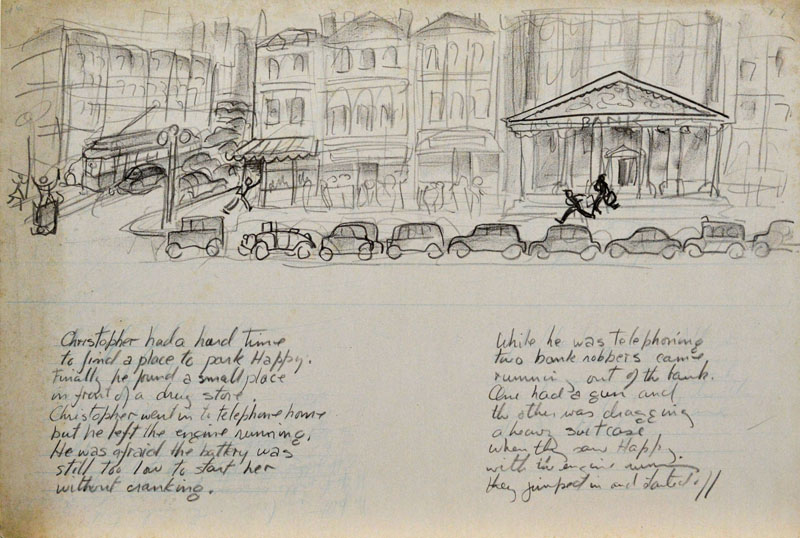 BANK
Christopher had a hard time
to find a place to park Happy.
Finally he found a small place
in front of a drug store.
Christopher went in to telephone home
but he left the engine running.
He was afraid the battery was
still too low to start her
without cranking.
While he was telephoning
two bank robbers came
running out of the bank.
One had a gun and
the other was dragging
a heavy suitcase
when they saw Happy.
with the engine running
they jumped in and started off